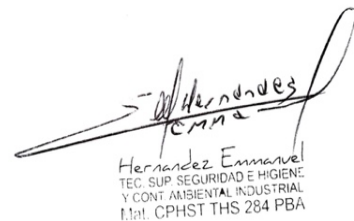 Hernandes
Emma
Hernandez Emmanuel
TEC. SUP. SEGURIDAD E HIGIENE
Y CONT. AMBIENTAL INDUSTRIAL
Mat. CPHST THS 284 PBA